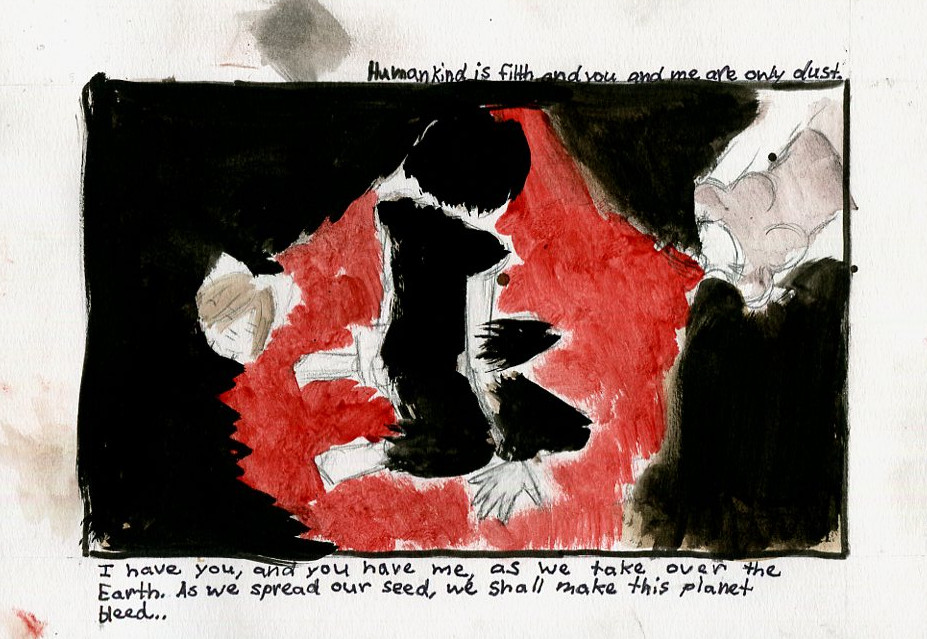 Humankind is filth and you and me are only dust.
I have you, and you have me, as we take over the
Earth. As we spread our seed, we shall make this planet
bleed..